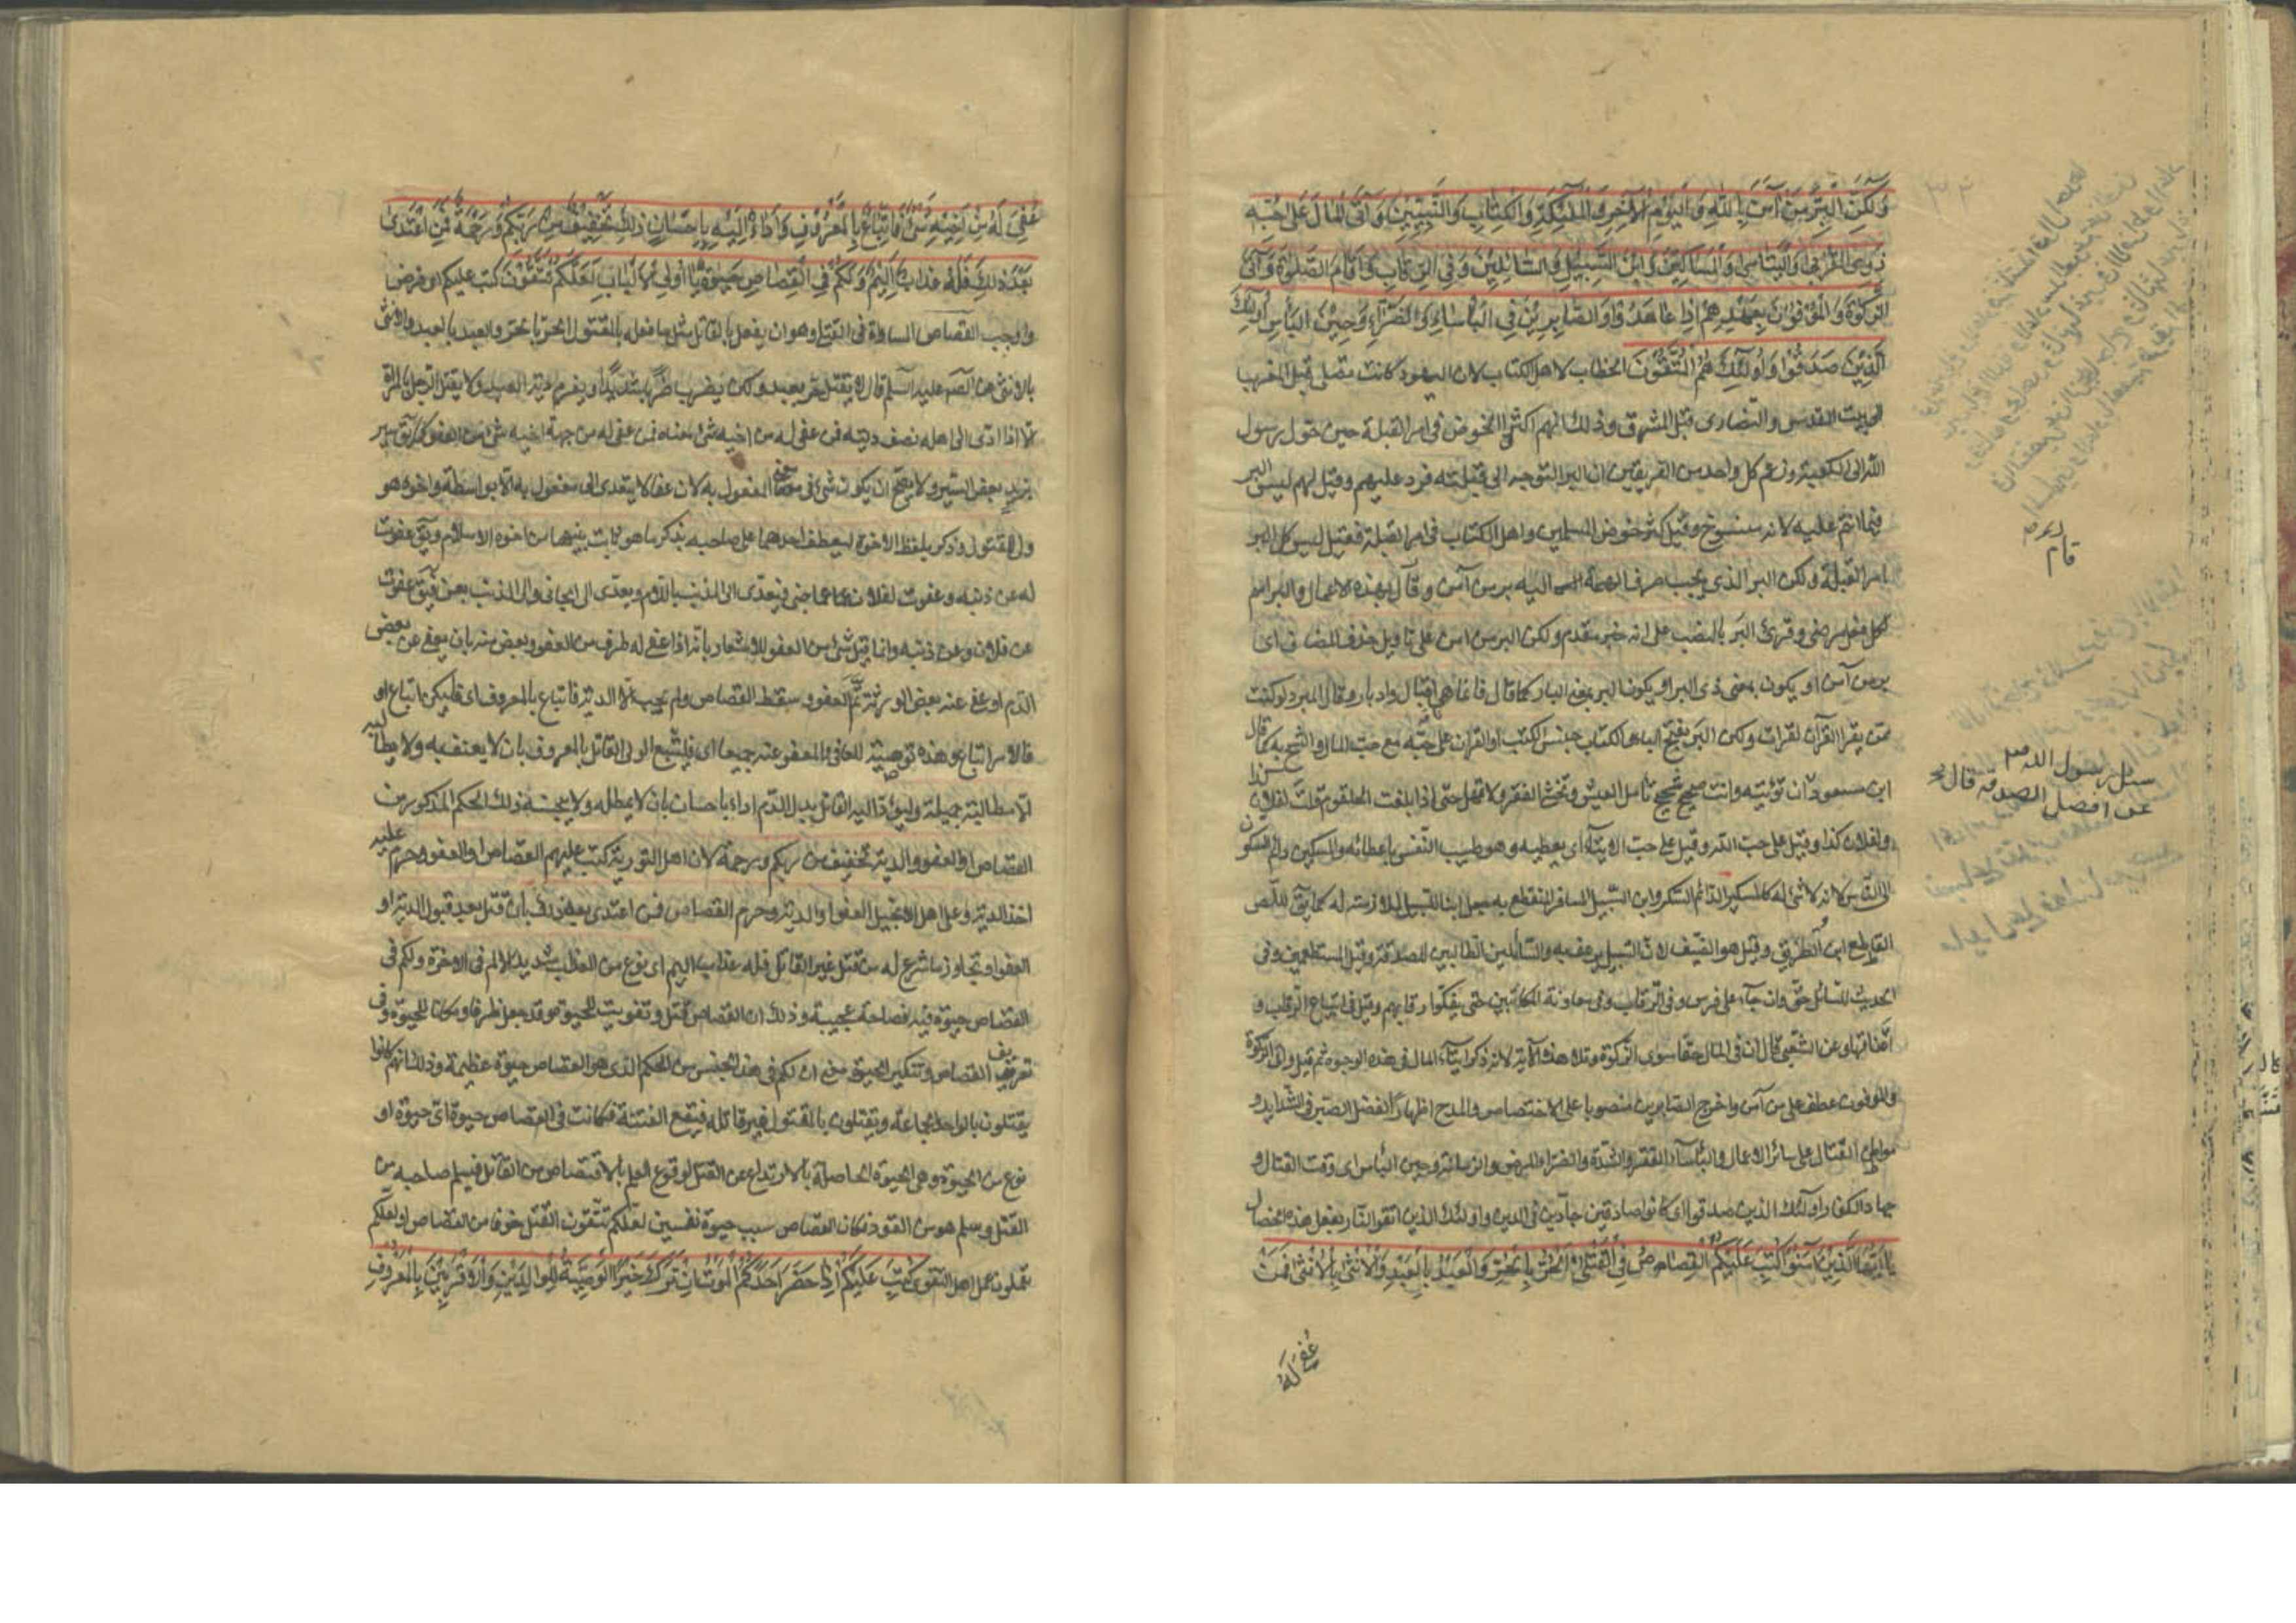 وَلَكِنَّ الْبِرَّ مَنْ آمَنَ بِاللّٰهِ وَالْيَوْمِ الْآخِرِ وَالْمَلٰئِكَةِ وَالْكِتَابِ وَالنَّبِيِّينَ وَآتَى الْمَالَ عَلَى حُبِّهِ
ذَوِي الْقُرْبَى وَالْيَتَامَى وَالْمَسَاكِينَ وَابْنَ السَّبِيلِ وَالسَّائِلِينَ وَفِي الرِّقَابِ وَأَقَامَ الصَّلٰوةَ وَآتَى
الزَّكٰوةَ وَالْمُوفُونَ بِعَهْدِهِمْ إِذَا عَاهَدُوا وَالصَّابِرِينَ فِي الْبَأْسَاءِ وَالضَّرَّاءِ وَحِينَ الْبَأْسِ أُولٰئِكَ
الَّذِينَ صَدَقُوا وَأُولٰئِكَ هُمُ الْمُتَّقُونَ الخطاب لاهل الكتاب لان اليهود كانت تصلى قبل المغرب
الى بيت المقدس والنصارى قبل المشرق وذلك انهم اكثروا الخوض فى امر القبلة حين حول رسول
الله الى الكعبة وزعم كل واحد من الفريقين ان البر التوجه الى قبلته فرد عليهم وقيل لهم ليس البر
فيما انتم عليه لانه منسوخ وقيل كثر خوض المسلمين واهل الكتاب فى امر القبلة فقيل ليس كل البر
امر القبلة ولكن البر الذى يجب صرف الهمة اليه بر من آمن وقام بهذه الاعمال والبر اسم
لكل فعل مرضى وقرئ البر بالنصب على انه خبر مقدم ولكن البر من امن على تاويل حذف المضاف اى
بر من آمن او يكون بمعنى ذى البر او يكون البر بمعنى البار كما قال فانما هى اقبال وادبار وقال المبرد لو كنت
ممن يقرا القرآن لقرات ولكن البر بفتح الباء والكتاب جنس الكتب او القران على حبه مع حب المال والشح به كما قال
ابن مسعود ان تؤتيه وانت صحيح شحيح تامل العيش وتخشى الفقر ولا تمهل حتى اذا بلغت الحلقوم قلت لفلان كذا
ولفلان كذا وقيل على حب الله وقيل على حب الايتاء اى يعطيه وهو طيب النفس باعطائه والمسكين دائم السكون
الى الناس لانه لا شئ له كالمسكير الدائم السكر وابن السبيل المسافر المنقطع به جعل ابنا للسبيل لملازمته له كما يقال للص
القاطع ابن الطريق وقيل هو الضيف لان السبيل يرعف به والسائلين الطالبين للصدقة وقيل المستطعمين وفى
الحديث للسائل حق وان جاء على فرس وفى الرقاب وفى معاونة المكاتبين حتى يفكوا رقابهم وقيل فى ابتياع الرقاب و
اعتاقها وعن الشعبى قال ان فى المال حقا سوى الزكوة وتلا هذه الآية لانه ذكر ايتاء المال فى هذه الوجوه ثم قيل واتى الزكوة
والموفون عطف على من آمن واخرج الصابرين منصوبا على الاختصاص والمدح اظهارا لفضل الصبر فى الشدائد و
مواطن القتال على سائر الاعمال والبأساء الفقر والشدة والضراء المرض والزمانة وحين البأس اى وقت القتال و
جهاد الكفار اولئك الذين صدقوا اى كانوا صادقين جادين فى الدين واولئك الذين اتقوا النار بفعل هذه الخصال
يَا أَيُّهَا الَّذِينَ آمَنُوا كُتِبَ عَلَيْكُمُ الْقِصَاصُ فِي الْقَتْلَى الْحُرُّ بِالْحُرِّ وَالْعَبْدُ بِالْعَبْدِ وَالْأُنْثَى بِالْأُنْثَى فَمَنْ
عُفِيَ لَهُ
قام
سئل رسول الله ص
عن افضل الصدقة قال
عُفِيَ لَهُ مِنْ أَخِيهِ شَيْءٌ فَاتِّبَاعٌ بِالْمَعْرُوفِ وَأَدَاءٌ إِلَيْهِ بِإِحْسَانٍ ذٰلِكَ تَخْفِيفٌ مِنْ رَبِّكُمْ وَرَحْمَةٌ فَمَنِ اعْتَدَى
بَعْدَ ذٰلِكَ فَلَهُ عَذَابٌ أَلِيمٌ وَلَكُمْ فِي الْقِصَاصِ حَيٰوةٌ يَا أُولِي الْأَلْبَابِ لَعَلَّكُمْ تَتَّقُونَ كتب عليكم اى فرض
واوجب القصاص المساواة فى القتلى وهو ان يفعل بالقاتل مثل ما فعله بالمقتول الحر بالحر والعبد بالعبد والانثى
بالانثى عن الصادق عليه السلم قال لا يقتل حر بعبد ولكن يضرب ضربا شديدا ويغرم دية العبد ولا يقتل الرجل بالمراة
الا اذا ادى الى اهله نصف ديته فمن عفى له من اخيه شئ معناه فمن عفى له من جهة اخيه شئ من العفو كما يقال سير
بزيد بعض السير ولا يصح ان يكون شئ فى معنى المفعول به لان عفا لا يتعدى الى مفعول به الا بواسطة واخوه هو
ولى المقتول وذكر بلفظ الاخوة ليعطف احدهما على صاحبه بذكر ما هو ثابت بينهما من اخوة الاسلام ويقال عفوت
له عن ذنبه وعفوت لفلان عما جنى فيتعدى الى المذنب باللام ويعدى الى الجانى والى الذنب بعن فيقال عفوت
عن فلان وعن ذنبه وانما قيل شئ من العفو للاشعار بانه اذا عفى له طرف من العفو وبعض منه بان يعفى عن بعض
الدم او عفى عنه بعض الورثة تم العفو وسقط القصاص ولم يجب الا الدية فاتباع بالمعروف اى فليكن اتباع او
فالامر اتباع وهذه توصية للعافى والمعفو عنه جميعا اى فليتبع الولى القاتل بالمعروف بان لا يعنف به ولا يطالبه
الا مطالبة جميلة وليؤد اليه القاتل بدل الدم اداء باحسان بان لا يمطله ولا يبخسه ذلك الحكم المذكور من
القصاص والعفو والدية تخفيف من ربكم ورحمة لان اهل التورية كتب عليهم القصاص او العفو وحرم عليهم
اخذ الدية وعلى اهل الانجيل العفو او الدية وحرم القصاص فمن اعتدى بعد ذلك بان قتل بعد قبول الدية او
العفو او تجاوز ما شرع له من قتل غير القاتل فله عذاب اليم اى نوع من العذاب شديد الالم فى الاخرة ولكم فى
القصاص حيوة فيه فصاحة عجيبة وذلك ان القصاص قتل وتفويت للحيوة وقد جعل ظرفا ومكانا للحيوة وفى
تعريف القصاص وتنكير الحيوة معنى ان لكم فى هذا الجنس من الحكم الذى هو القصاص حيوة عظيمة وذلك انهم كانوا
يقتلون بالواحد الجماعة ويقتلون بالمقتول غير قاتله فيقع الفتنة فكانت فى القصاص حيوة اى حيوة او
نوع من الحيوة وهى الحيوة الحاصلة بالارتداع عن القتل لوقوع العلم بالاقتصاص من القاتل فيسلم صاحبه من
القتل ويسلم هو من القود فكان القصاص سبب حيوة نفسين لعلكم تتقون القتل خوفا من القصاص او لعلكم
تعملون عمل اهل التقوى كُتِبَ عَلَيْكُمْ إِذَا حَضَرَ أَحَدَكُمُ الْمَوْتُ إِنْ تَرَكَ خَيْرًا الْوَصِيَّةُ لِلْوَالِدَيْنِ وَالْأَقْرَبِينَ بِالْمَعْرُوفِ